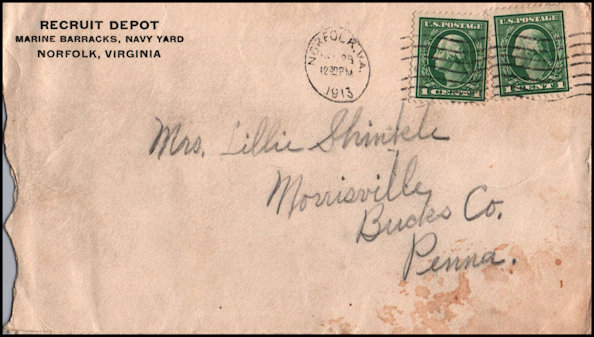 RECRUIT DEPOT
MARINE BARRACKS, NAVY YARD
NORFOLK, VIRGINIA
NORFOLK, VA.
12 30 PM
1913
U.S. POSTAGE
1 CENT 1
U.S. POSTAGE
1 CENT 1
Mrs. Lillie Shinkle
Morrisville
Bucks Co.
Penna.